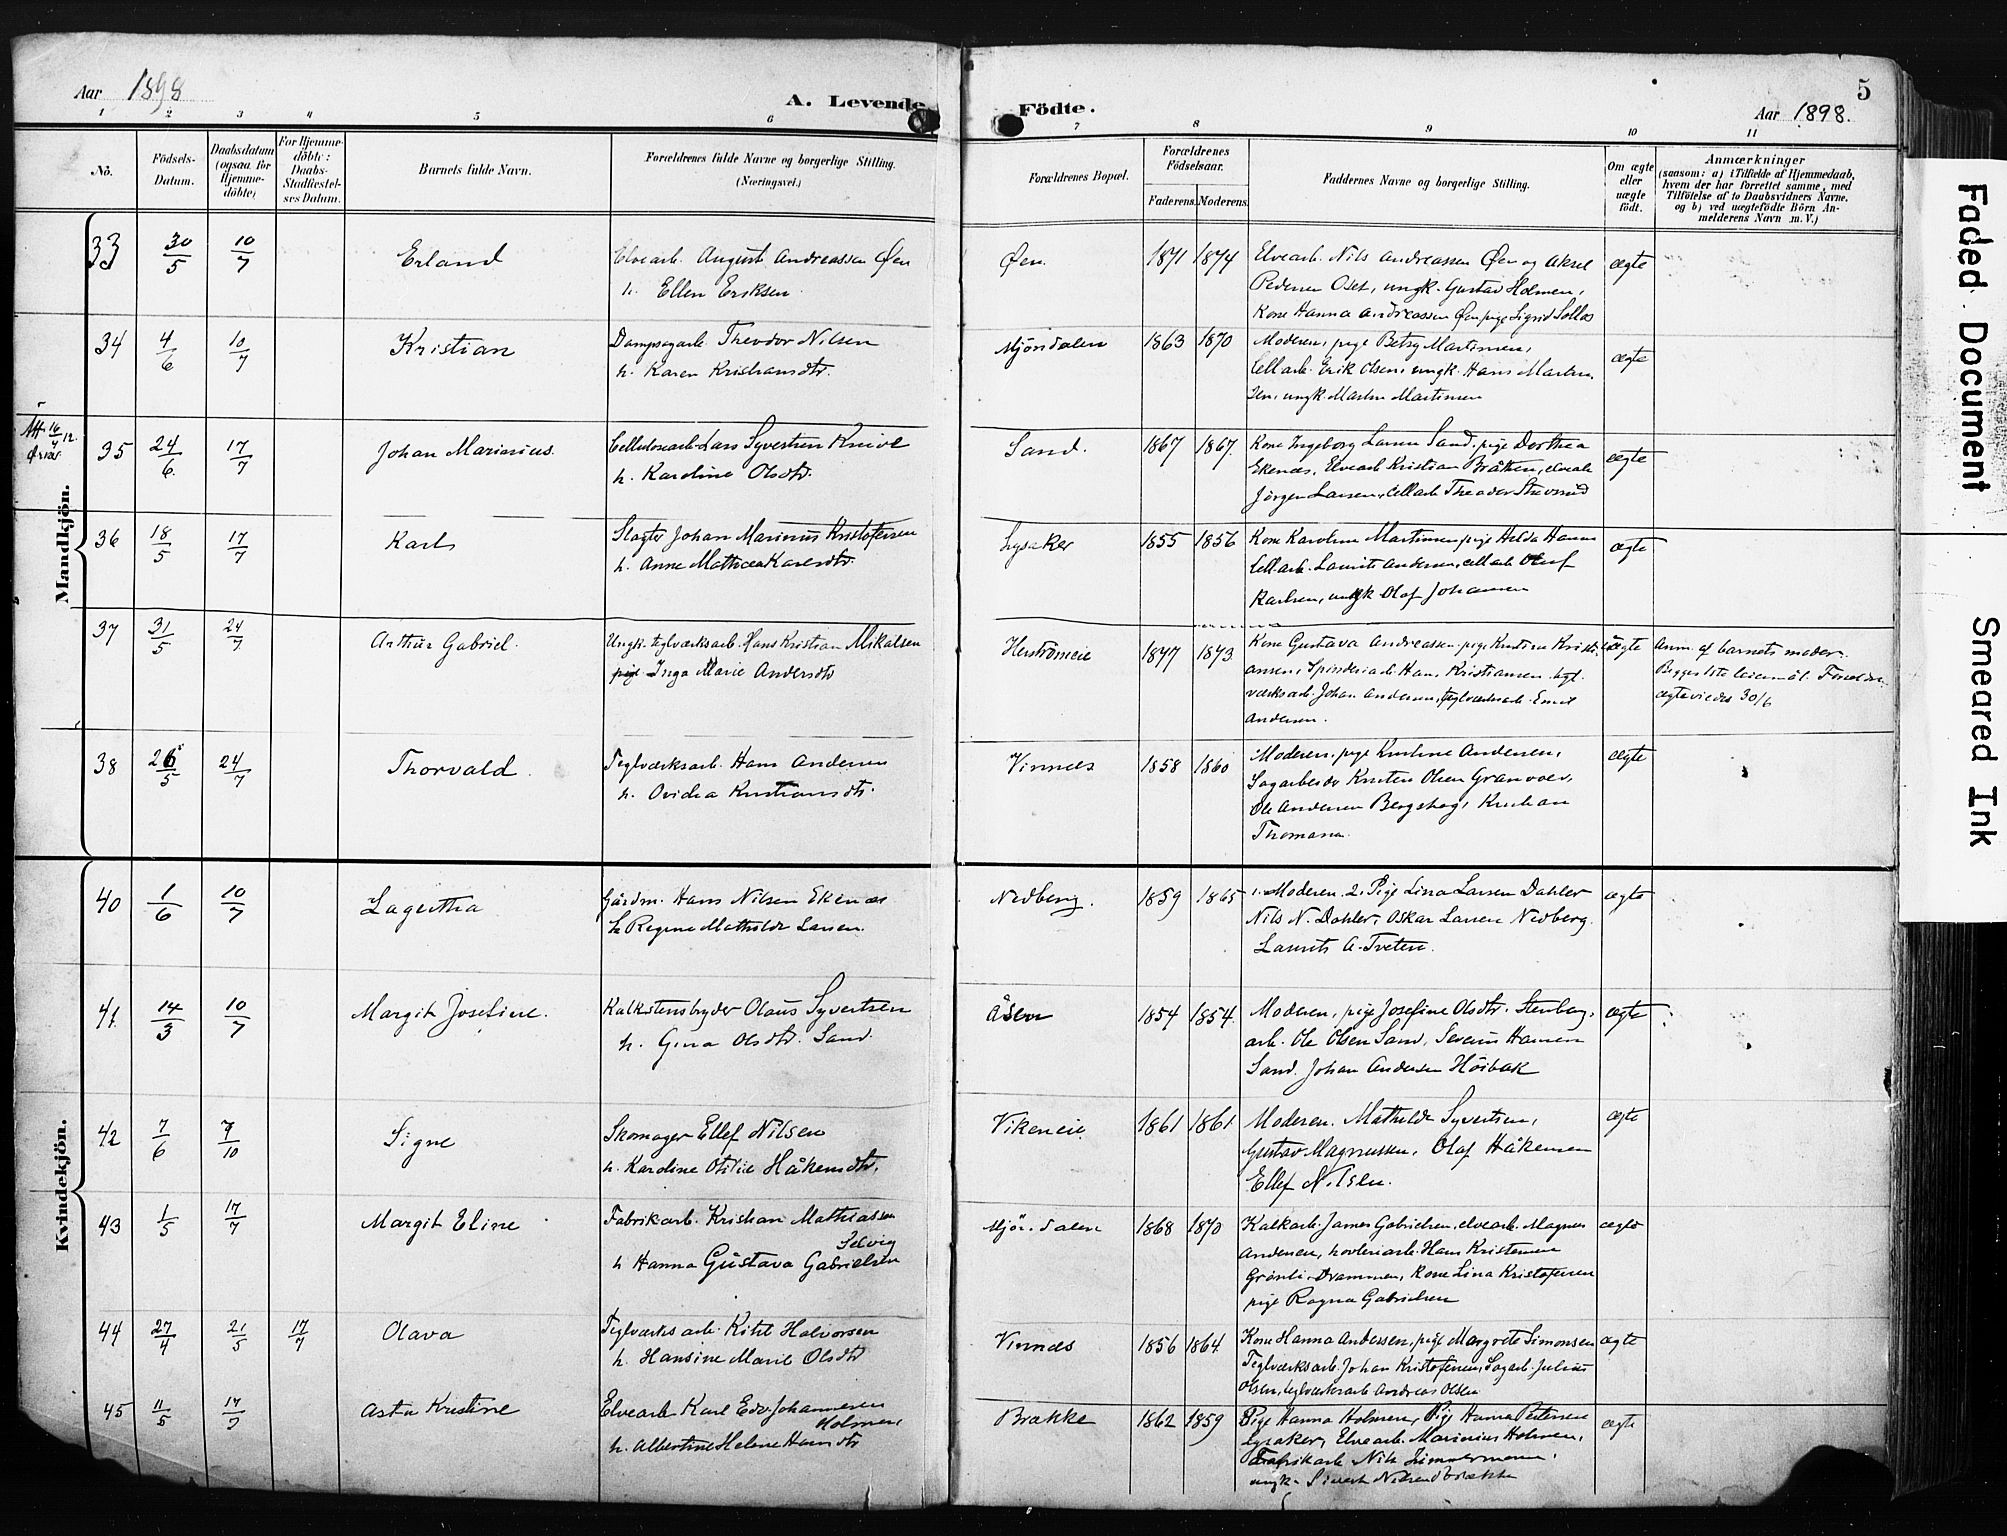 Aar 1898
A. Levende Födte.
Aar 1898.
5
1 2 3 4 5 6 7 8 9 10 11
No.
Födsels-Datum.
Daabsdatum (ogsaa for Hjemme-döbte)
For Hjemme-döbte: Daabs-Stadfæstel-ses Datum.
Barnets fulde Navn.
Forældrenes fulde Navne og borgerlige Stilling. (Næringsvei.)
Forældrenes Bopæl.
Forældrenes Födselsaar.
Faderens. Moderens.
Faddernes Navne og borgerlige Stilling.
Om ægte eller uægte födt.
Anmærkninger
(saasom: a) i Tilfælde af Hjemmedaab, hvem der har forrettet samme, med Tilföielse af to Daabsvidners Navne, og b) ved uægtefödte Börn An-melderens Navn m. V.)
Mandkjön.
33 30/5 10/7 Erland
Elvearb. August Andreassen Øen
h. Ellen Eriksen
Øen. 1871 1874
Elvearb. Nils Andreassen Øen og Aksel
Pedersen Oset, ungk. Gustav Holmen,
Kone Hanna Andreassen Øen pige Sigrid Solløs
ægte
34 4/6 10/7 Kristian
Dampsagarb. Theodor Nilsen
h. Karen Kristiansdtr.
Mjöndalen 1863 1870
Moderen, pige Betsy Martinsen,
Cell.arb. Erik Olsen, ungk. Hans Martin-
sen, ungk. Martin Martinsen
ægte
35 24/6 17/7 Johan Marinius.
Cellulosearb. Lars Syvertsen Knive
h. Karoline Olsdtr.
Sand. 1867 1867.
Kone Ingeborg Larsen Sand, pige Dorthea
Ekenæs, Elvearb Kristian Bråthen, elvearb
Jörgen Larsen, Cellarb Theodor
ægte
36 18/5 17/7 Karl
Slagter Johan Marinius Kristofersen
h. Anne Mathea Karlsdtr.
Lysaker 1855 1856
Kone Karoline Martinsen, pige Hilda Hansen
Cell.arb. Laurits Andersen, cell.arb Oluf
Karlsen, ungk Olaf Johansen
ægte
37 31/5 24/7 Arthur Gabriel.
Ungk. teglværksarb. Hans Kristian Mikalsen
pige Inga Marie Andersdtr
Herströmeie 1877 1873
Kone Gustava Andreassen, pige Kristine Kristi-
ansen, Spinderiarb Hans Kristiansen, tegl-
værksarb. Johan Andersen, teglværksarb. Emil
Andersen.
uægte
Anm. af barnets moder.
Begges 1ste leiermål. Foreldre
ægteviedes 30/6
38 26/5 24/7 Thorvald
Teglværksarb. Hans Andersen
h. Ovidia Kristiansdtr.
Vinnæs 1858 1860
Moderen, pige Kristine Andersen,
Sagarbeider Kristen Olsen
Ole Andersen Bergshag, Kristian
ægte
Kvindekjön.
40 1/6 10/7 Lagertha
Gårdm. Hans Nilsen Ekenæs
h. Regine Mathilde Larsen.
Nedberg. 1859 1865
1. Moderen. 2. Pige Lina Larsen Dahler
Nils N. Dahler, Oskar Larsen Nedberg.
Laurits A. Tveten.
ægte
41 14/3 10/7 Margit Josefine.
Kalkstensbryder Olaus Syvertsen
h. Gina Olsdtr. Sand.
Åsen 1854 1854.
Moderen, pige Josefine Olsdtr. Stenberg,
arb. Ole Olsen Sand, Severin Hansen
Sand. Johan Andersen Höibak
ægte
42 7/6 7/10 Signe
Skomager Ellef Nilsen
h. Karoline Otilie Håkensdtr.
Vikeneie. 1861 1861
Moderen. Mathilde Syvertsen,
Gustav Magnussen, Olaf Håkensen
Ellef Nilsen.
ægte
43 1/5 17/7 Margit Eline
Fabrikarb. Kristian Mathiassen
Solvig
h Hanna Gustava Gabrielsen
Mjöndalen 1868 1870
Kalkarb. James Gabrielsen, elvearb. Magnus
Andersen, hövleriarb. Hans Kristensen
Grönli Drammen, Kone Lina Kristofersen
pige Ragna Gabrielsen
ægte
44 27/4 21/5 17/7 Olava
Teglværksarb. Kitil Halvorsen
h. Hansine Marie Olsdtr
Vinnæs 1856 1864
Kone Hanna Anderssen, pige Margrete Simonsen
Teglværksarb. Johan Kristofersen, Sagarb. Julius
Olsen, teglværksarb Andreas Olsen
ægte
45 11/5 17/7 Asta Kristine
Elvearb Karl Edv. Johannesen
Holmen
h. Albertine Helene Hansdtr
Brække 1862 1859
Pige Hanna Holmen, Pige Hanna Pettersen
Lysaker, Elvearb. Marinius Holmen,
Fabrikarb Nils Zimmermann,
ungk. Sivert Nilsen Brække
ægte
Faded Document
Smeared Ink